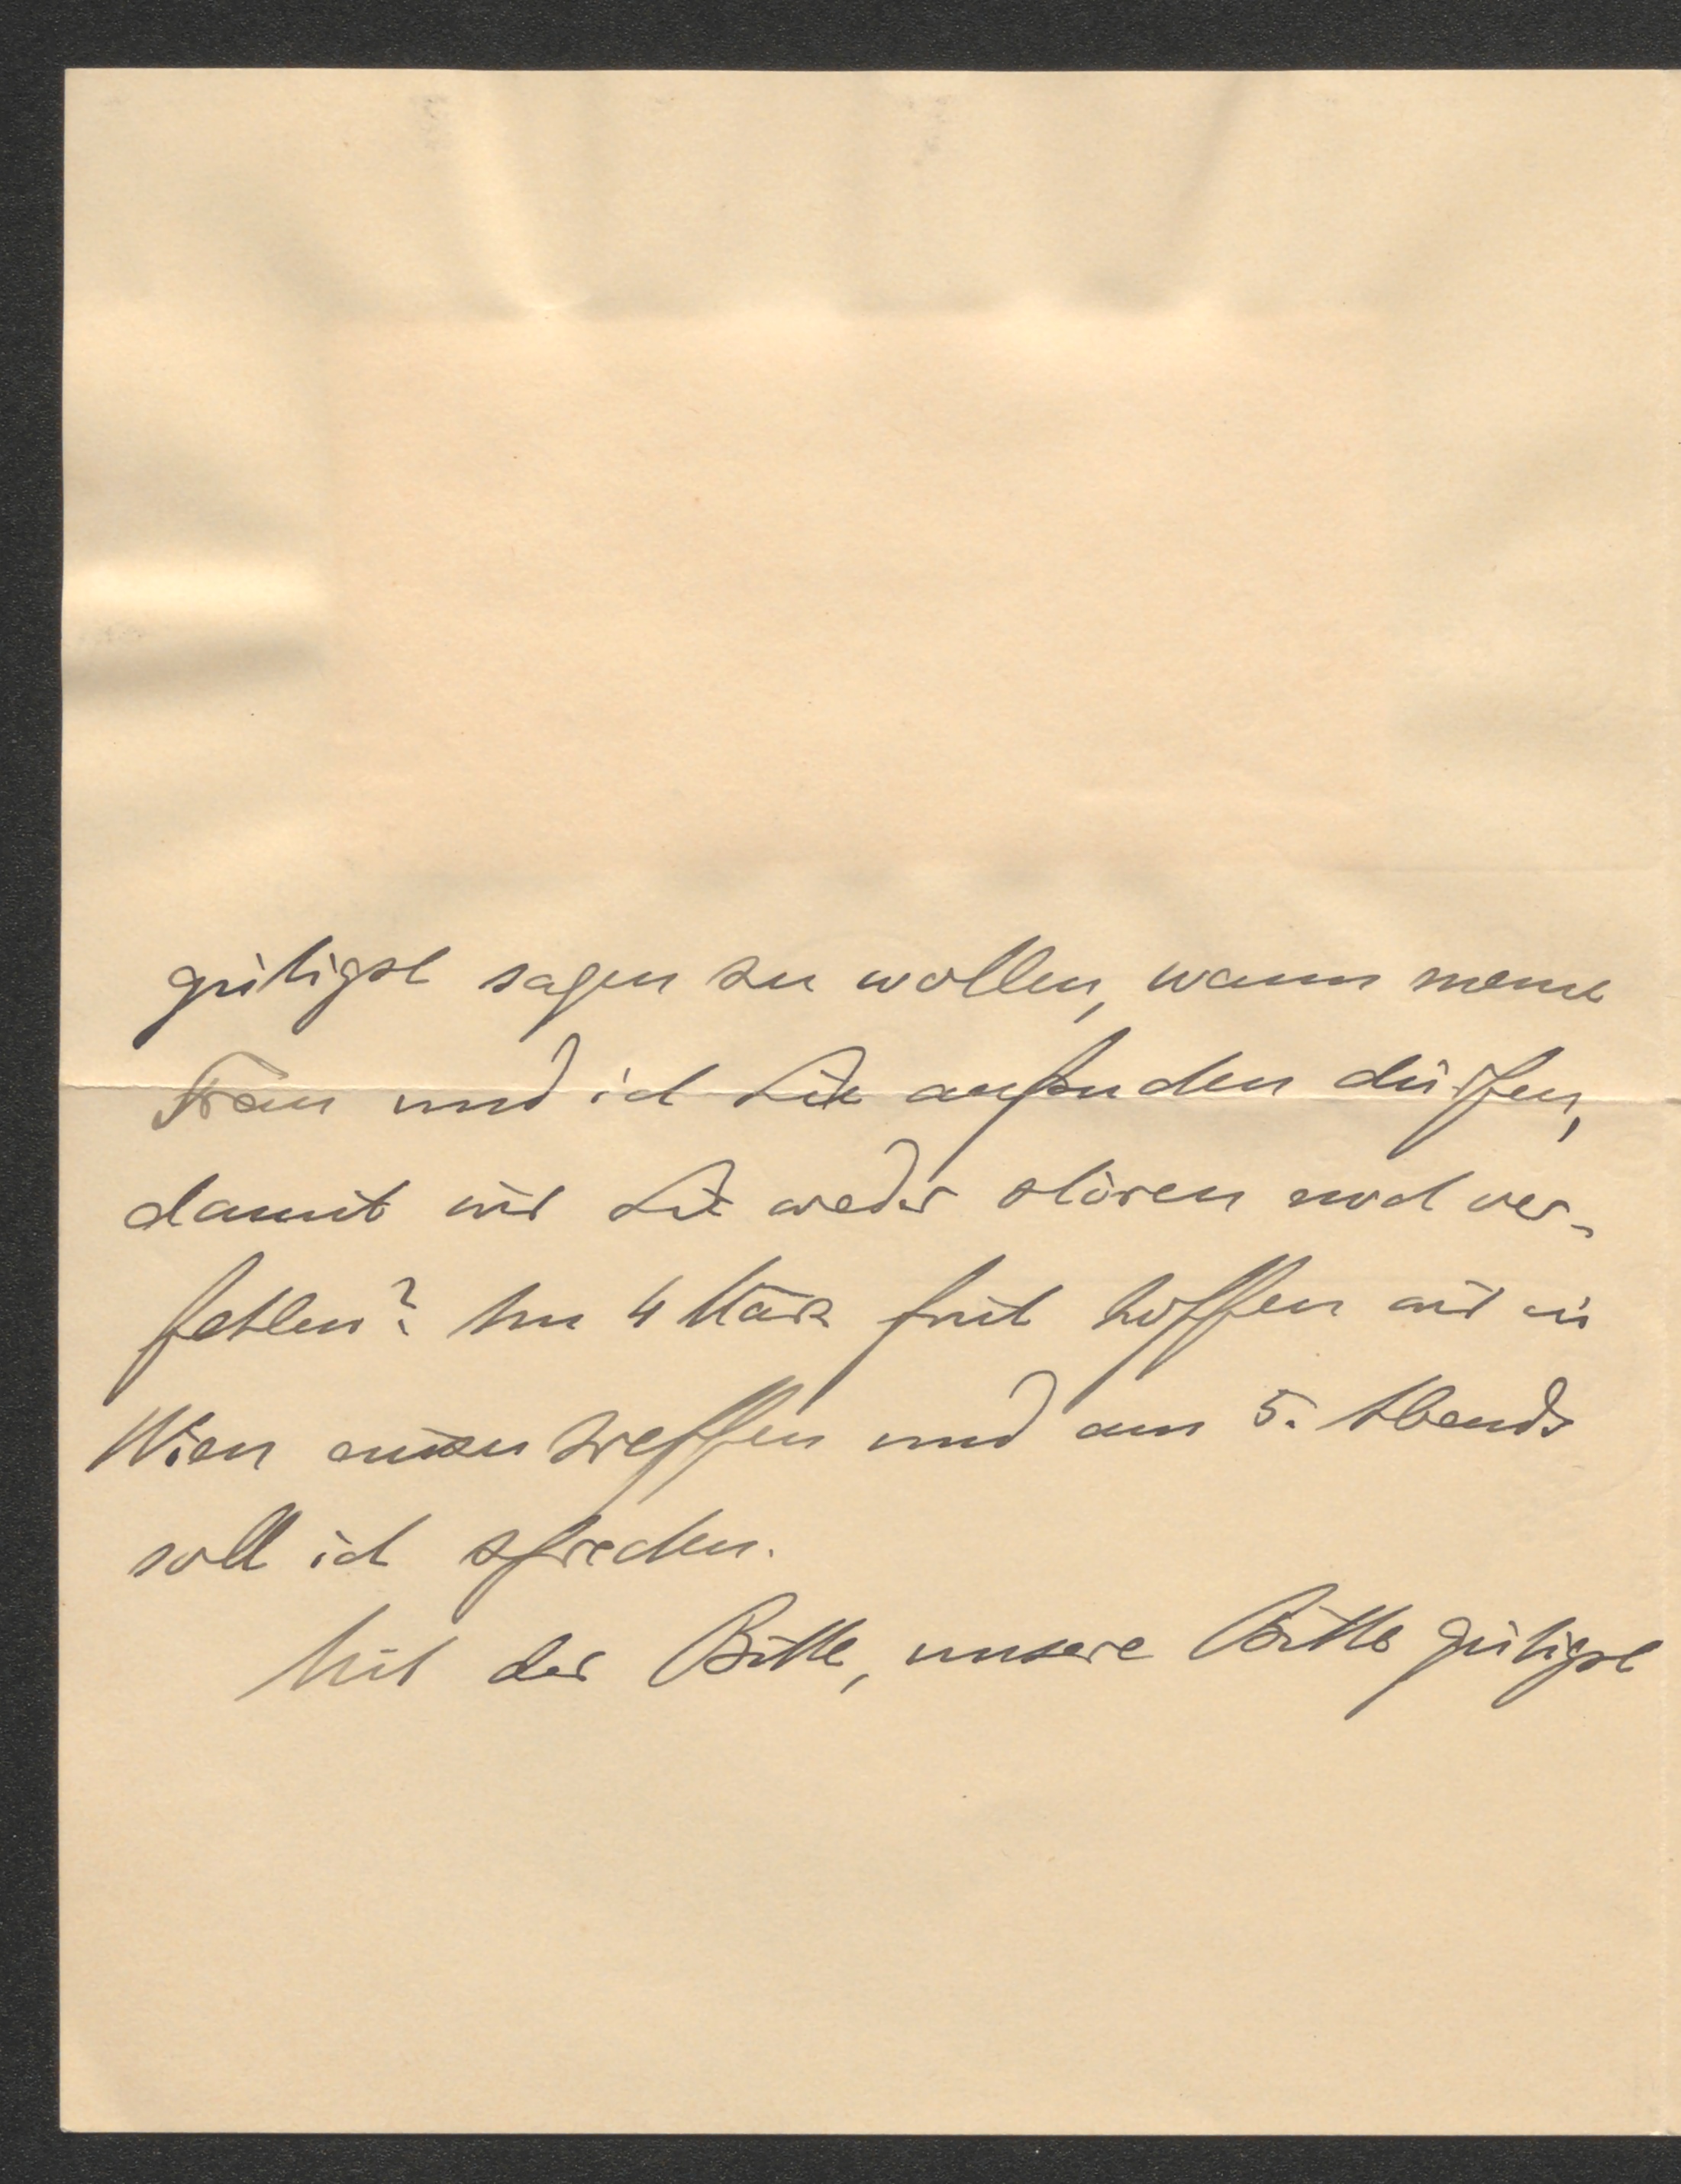 gütigst sagen zu wollen, wann meine
Frau und ich Sie aufsuchen dürfen,
damit wir Sie weder stören noch ver-
fehlen? Am 4 März früh hoffen wir in
Wien einzutreffen und am 5. Abends
soll ich sprechen.
Mit der Bitte, unsere Bitte gütigst